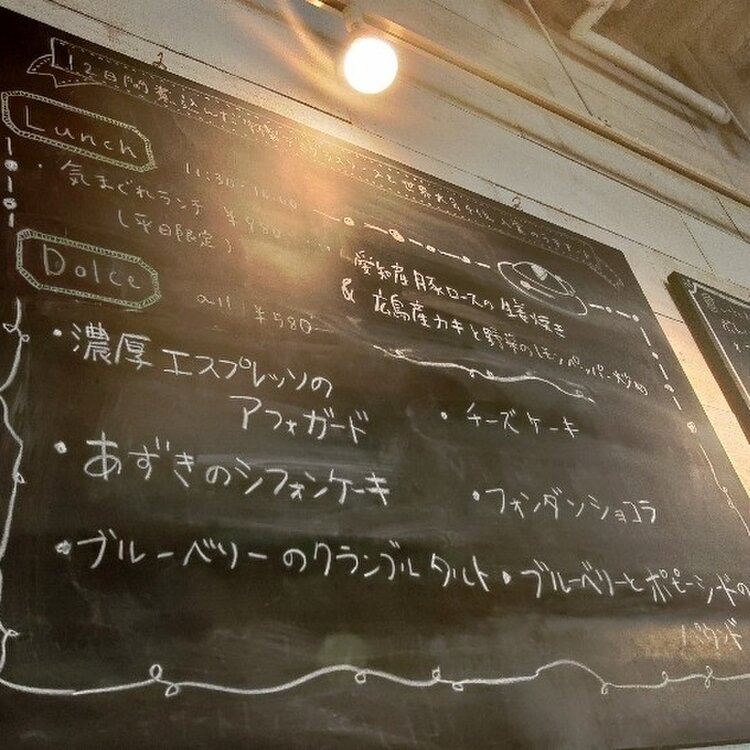 12日間煮込んだ
Lunch
11:30-
・気まぐれランチ ¥980
(平日限定)
愛知産豚ロースの生姜焼き
& 広島産カキと野菜のレモンペッパー炒め
Dolce
all ¥580
・濃厚エスプレッソの
アフォガード
・チーズケーキ
・あずきのシフォンケーキ
・フォンダンショコラ
・ブルーベリーのクランブルタルト
・ブルーベリーとポピーシードの
パウンド